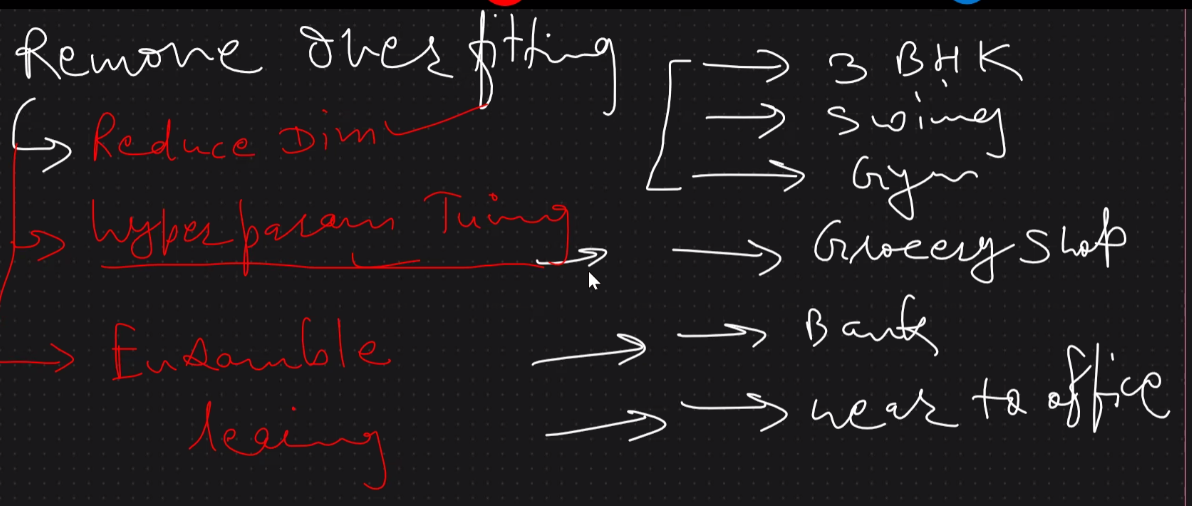 Remove Overfitting
Reduce Dim
Hyperparam Tuing
Ensamble
leaing
3 BHK
Swimg
Gym
Grocery Shop
Bank
near to office